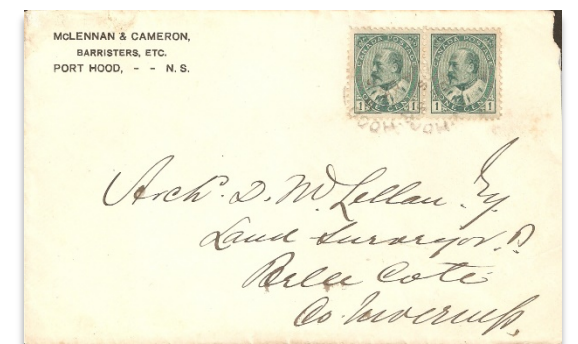 McLENNAN & CAMERON,
BARRISTERS, ETC.
PORT HOOD, - - N. S.
CANADA POSTAGE CANADA POSTAGE
1 ONE CENT 1 1 ONE CENT 1
HOOD
Arch. D. McLellan Esq.
Land Surveyor
Belle Cote
Co. Inverness,